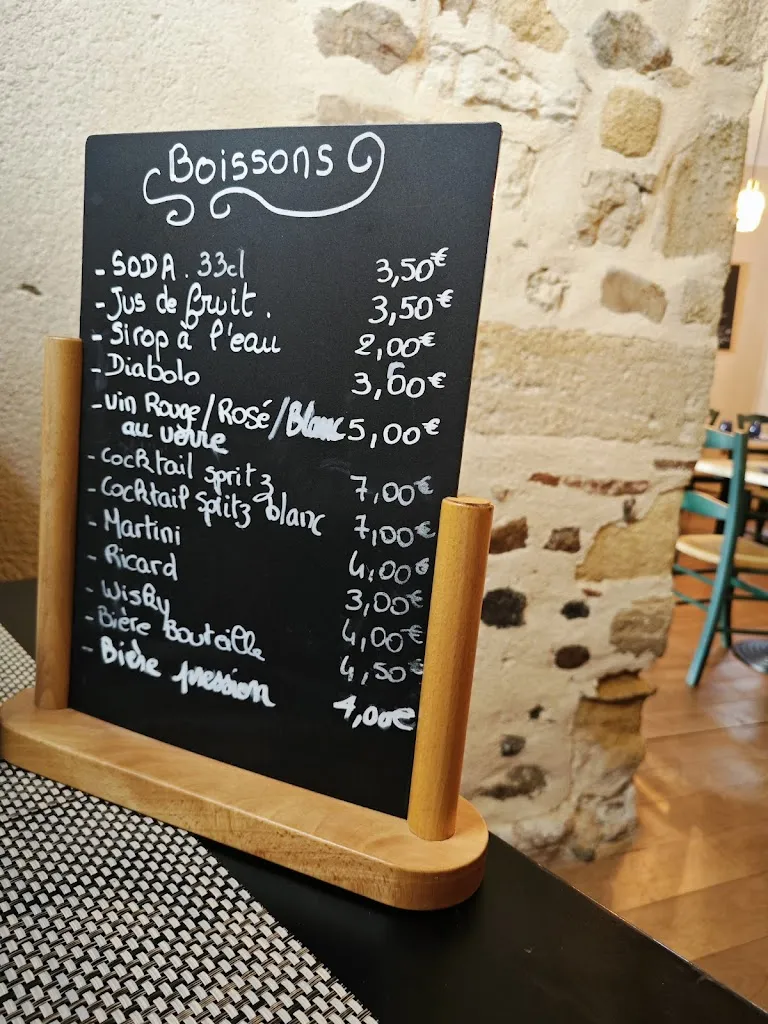 Boissons
- SODA. 33cl 3,50€
- Jus de fruit. 3,50€
- Sirop à l'eau 2,00€
- Diabolo 3,60€
- Vin Rouge/Rosé/Blanc 5,00€
au verre
- Cocktail spritz 7,00€
- Cocktail splitz blanc 7,00€
- Martini 4,00€
- Ricard 3,00€
- Wisky 4,00€
- Bière Bouteille 4,50€
- Bière pression 4,00€